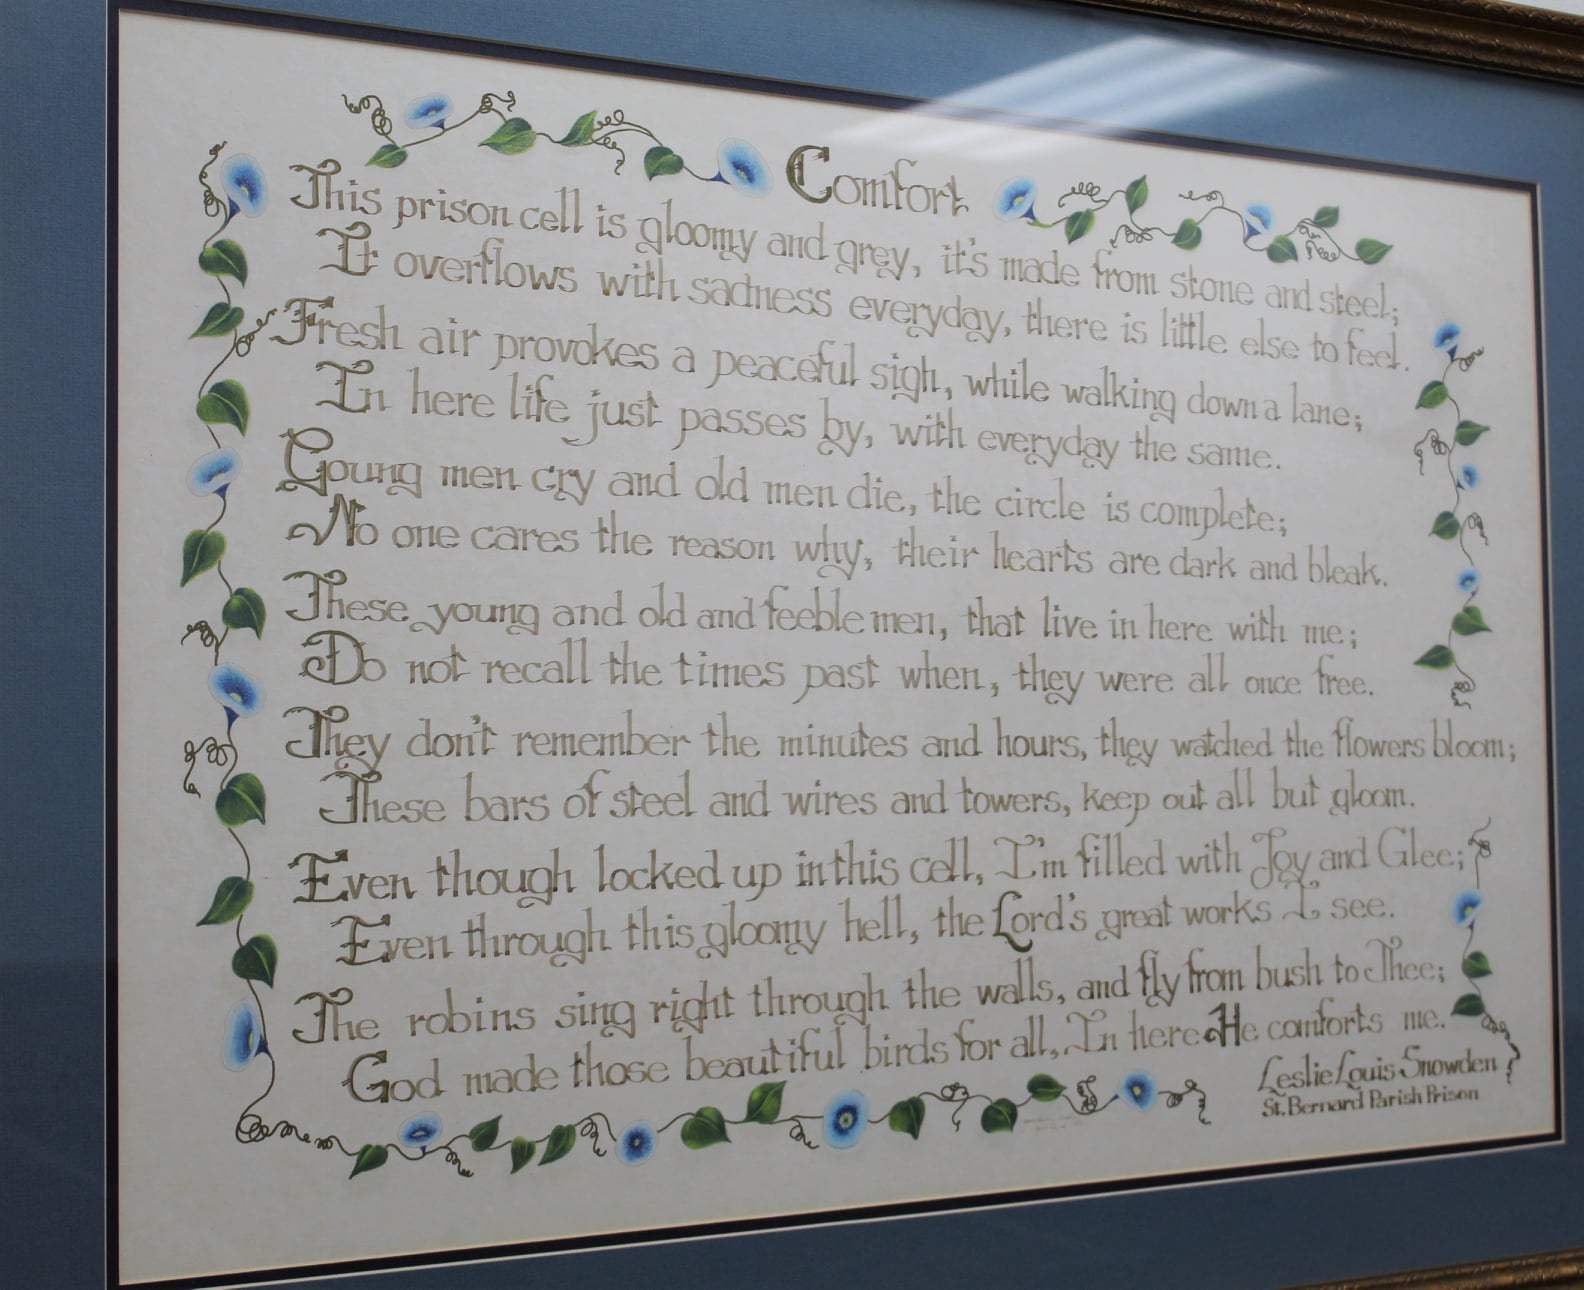 Comfort
This prison cell is gloomy and grey, it's made from stone and steel;
It overflows with sadness everyday, there is little else to feel.
Fresh air provokes a peaceful sigh, while walking down a lane;
In here life just passes by, with everyday the same.
Young men cry and old men die, the circle is complete;
No one cares the reason why, their hearts are dark and bleak.
These young and old and feeble men, that live in here with me;
Do not recall the times past when, they were all once free.
They don't remember the minutes and hours, they watched the flowers bloom;
These bars of steel and wires and towers, keep out all but gloom.
Even though locked up in this cell, I'm filled with Joy and Glee;
Even through this gloomy hell, the Lord's great works I see.
The robins sing right through the walls, and fly from bush to Thee;
God made those beautiful birds for all, In here He comforts me.
Leslie Louis Snowden
St. Bernard Parish Prison